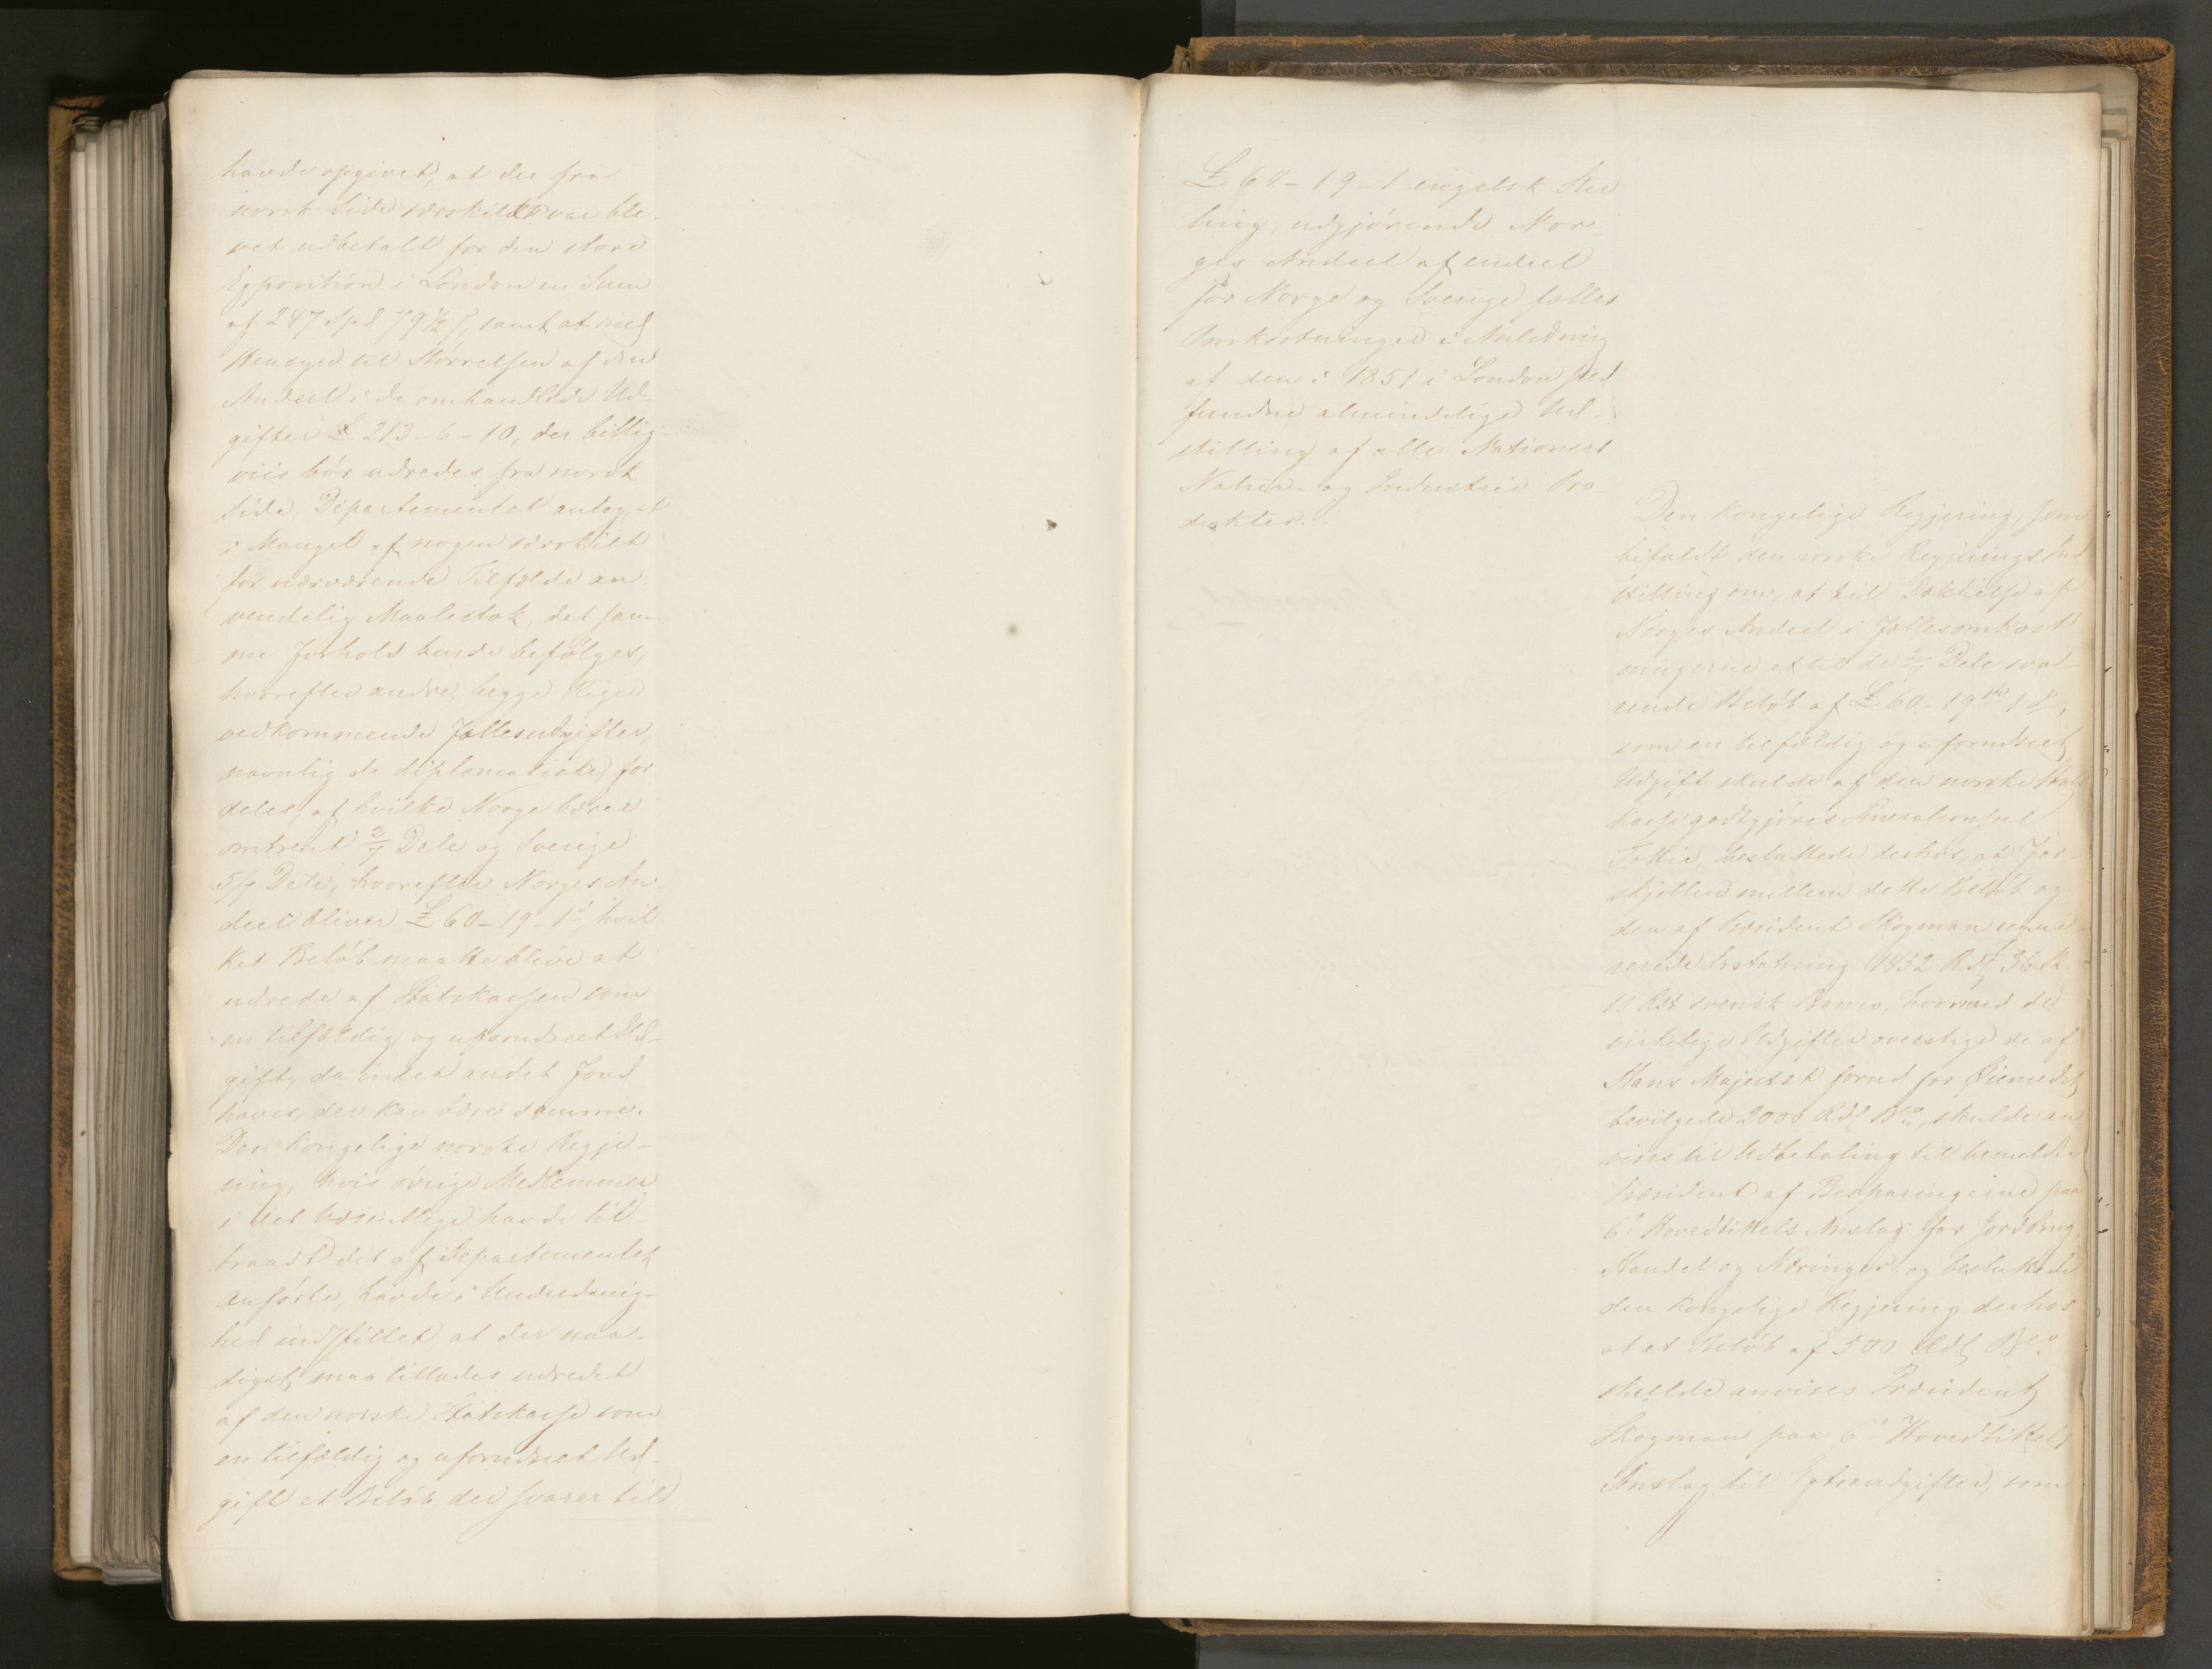 havde opgivet, at der fra
norsk Side særskildt var ble-
vet udbetalt for den store
Exposition i London en Sum
af 247 Spd 79 1/2 ß, samt at med
Hensyn til Størrelsen af den
Andeel i de omhandlede Ud-
gifter £ 213-6-10, der billig-
viis bør udredes fra norsk
Side, Departementet antog, at
i Mangel af nogen særskilt
for nærværende Tilfælde an-
vendelig Maalestok, det sam-
me Forhold burde befølges,
hvorefter andre, begge Riger
vedkommende Fællesudgifter,
navnlig de diplomatiske, for
deles, af hvilke Norge bærer
omtrent 2/7 Dele og Sverige
5/7 Dele, hvorefter Norges An-
deel bliver £ 60-19-1, hvil
ket Beløb maatte blive at
udrede af Statskassen som
en tilfældig og uforudseet Ud-
gift, da intet andet Fond
haves, der kan bære samme.
Den kongelige norske Regje-
ring, hvis øvrige Medlemmer
i det Væsentlige havde til-
traadt det af Departementet
Anførte, havde i Underdanig-
hed indstillet, at der naa-
digst maa tillades udredet
af den norske Statskasse som
en tilfældig og uforudseet Ud-
gift et Beløb, der svarer til
£ 60-19-1 engelsk Ster
ling, udgjørende Nor-
ges Andeel af endeel
for Norge og Sverige fælles
Omkostninger i Anledning
af den i 1851 i London sted
fundne almindelige Ud-
stilling af alle Nationers
Natur- og Industrie Pro-
dukter.
Den kongelige Regjering, som
bifaldt den norske Regjerings Ind
stilling om, at til Dækkelse af
Norges Andeel i Fællesomkost
ningerne et til de 2/7 Dele sva-
rende Beløb af £ 60-19 sh 1 d,
som en tilfældig og uforudseet
Udgift skulde af den norske Stats
kasse godtgjøres Generalconsul
Tottie, besluttede derhos, at For-
skjellen mellem dette Beløb og
den af Præsident Skogman regne-
rerede Erstatning 1452 Rdl 36 sk.
10 Rst svensk Banco, hvormed de
virkelige Udgifter overstige de af
Hans Majestet forud for Øiemedet
bevilgede 2000 Rdl Bco, skulde an
vises til Udbetaling til bemeldte
Præsident af Besparingerne paa
6te Hovedtittels Anslag for Jordbrug,
Handel og Næringer, og besluttede
den kongelige Regjering derhos
at et Beløb af 500 Rdl Bco
skulde anvises Præsident
Skogman paa 6te Hovedtittels
Anslag til Extraudgifter, som